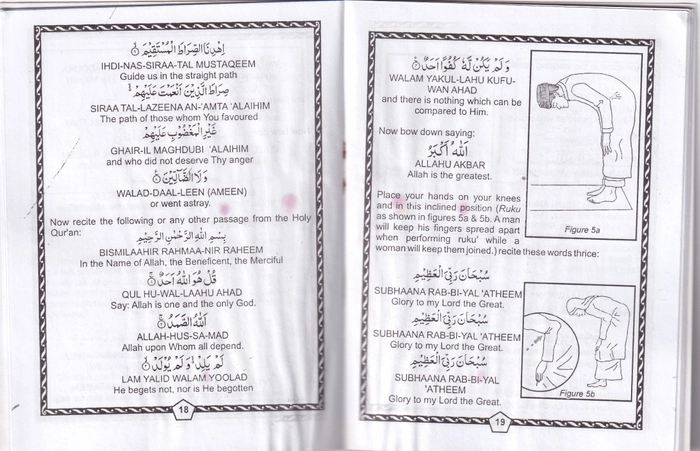 اِهْدِنَا الصِّرَاطَ الْمُسْتَقِيْمَ
IHDI-NAS-SIRAA-TAL MUSTAQEEM
Guide us in the straight path
صِرَاطَ الَّذِيْنَ اَنْعَمْتَ عَلَيْهِمْ
SIRAA TAL-LAZEENA AN-'AMTA 'ALAIHIM
The path of those whom You favoured
غَيْرِ الْمَغْضُوْبِ عَلَيْهِمْ
GHAIR-IL MAGHDUBI 'ALAIHIM
and who did not deserve Thy anger
وَلَا الضَّآلِّيْنَ
WALAD-DAAL-LEEN (AMEEN)
or went astray.
Now recite the following or any other passage from the Holy
Qur'an:
بِسْمِ اللهِ الرَّحْمٰنِ الرَّحِيْمِ
BISMILAAHIR RAHMAA-NIR RAHEEM
In the Name of Allah, the Beneficent, the Merciful
قُلْ هُوَ اللهُ اَحَدٌ
QUL HU-WAL-LAAHU AHAD
Say: Allah is one and the only God.
اَللهُ الصَّمَدُ
ALLAH-HUS-SA-MAD
Allah upon Whom all depend.
لَمْ يَلِدْ وَلَمْ يُوْلَدْ
LAM YALID WALAM YOOLAD
He begets not, nor is He begotten
18
وَلَمْ يَكُنْ لَّهٗ كُفُوًا اَحَدٌ
WALAM YAKUL-LAHU KUFU-
WAN AHAD
and there is nothing which can be
compared to Him.
Now bow down saying:
اَللهُ اَكْبَرُ
ALLAHU AKBAR
Allah is the greatest.
Place your hands on your knees
and in this inclined position (Ruku
as shown in figures 5a & 5b. A man
will keep his fingers spread apart
when performing ruku' while a
woman will keep them joined.) recite these words thrice:
Figure 5a
سُبْحَانَ رَبِّيَ الْعَظِيْمِ
SUBHAANA RAB-BI-YAL 'ATHEEM
Glory to my Lord the Great.
سُبْحَانَ رَبِّيَ الْعَظِيْمِ
SUBHAANA RAB-BI-YAL 'ATHEEM
Glory to my Lord the Great.
سُبْحَانَ رَبِّيَ الْعَظِيْمِ
SUBHAANA RAB-BI-YAL
'ATHEEM
Glory to my Lord the Great.
Figure 5b
19